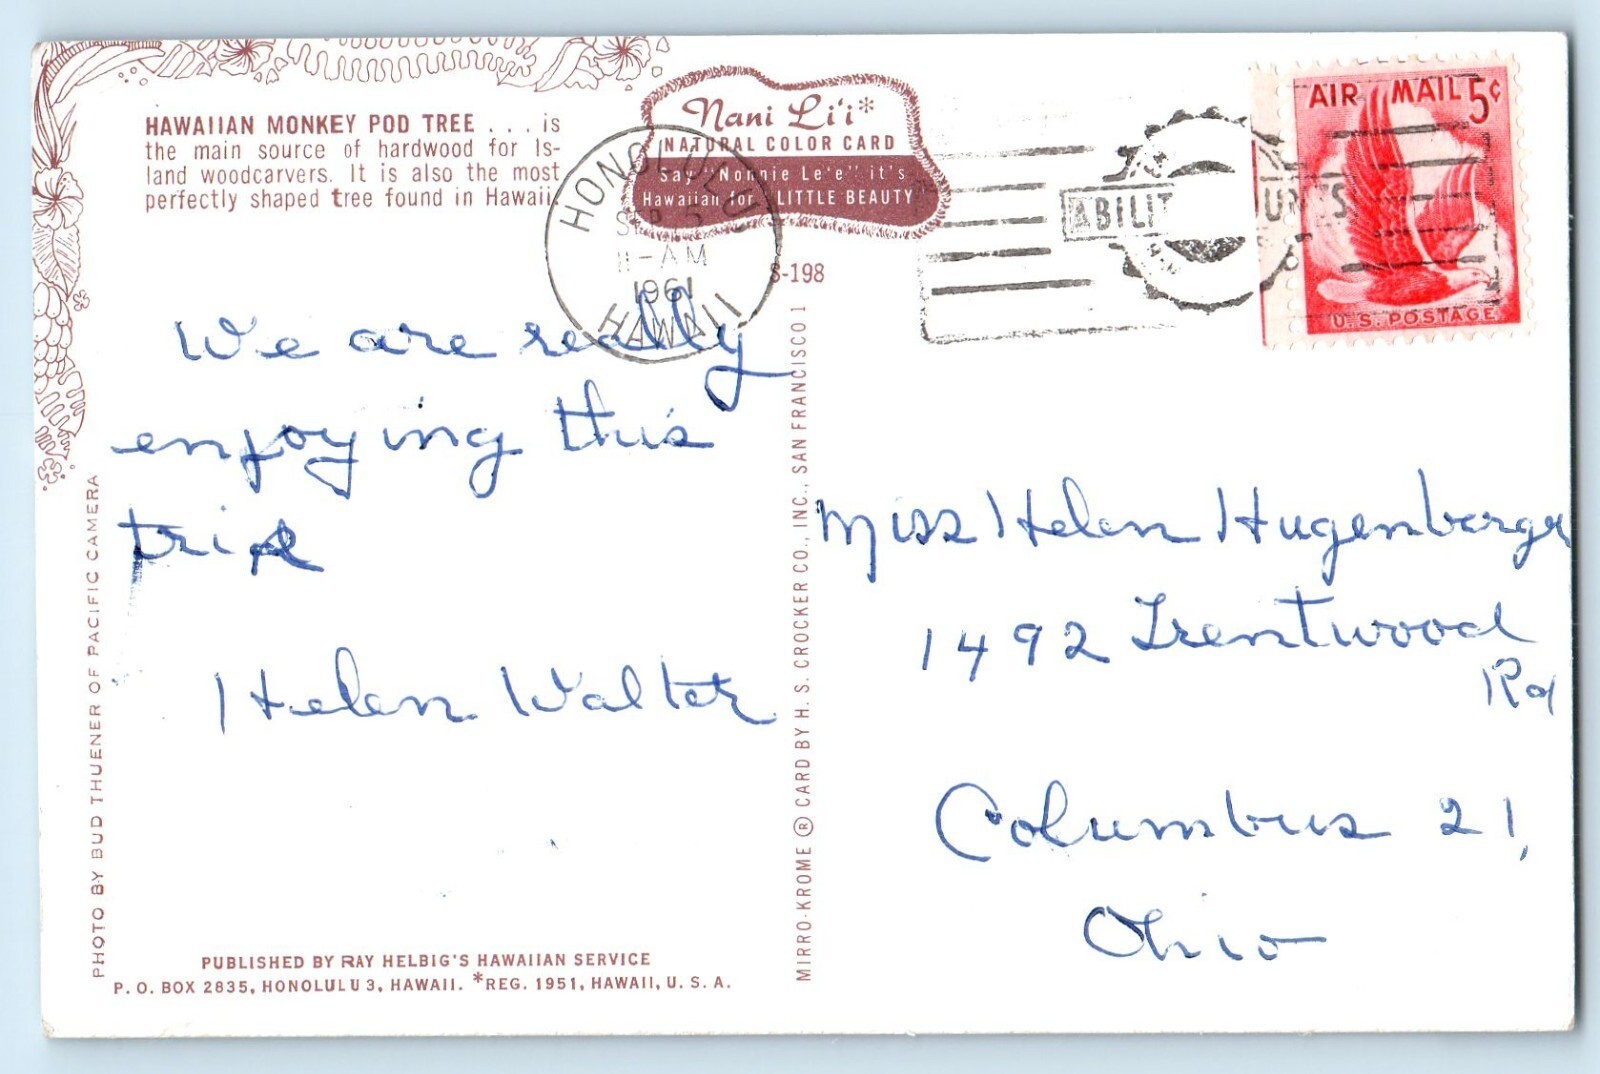 HAWAIIAN MONKEY POD TREE . . . is
the main source of hardwood for Is-
land woodcarvers. It is also the most
perfectly shaped tree found in Hawaii.
Nani Li'i*
NATURAL COLOR CARD
Say "Nonnie Le'e" it's
Hawaiian for LITTLE BEAUTY
HONOLULU
SEP 5
11-AM
1961
HAWAII
AIR MAIL 5¢
U.S. POSTAGE
S-198
We are really
enjoying this
trip
Helen Walter
Miss Helen Hugenberger
1492 Trentwood
Rd
Columbus 21,
Ohio
PHOTO BY BUD THUENER OF PACIFIC CAMERA
MIRRO-KROME ® CARD BY H. S. CROCKER CO., INC., SAN FRANCISCO 1
PUBLISHED BY RAY HELBIG'S HAWAIIAN SERVICE
P. O. BOX 2835, HONOLULU 3, HAWAII. *REG. 1951, HAWAII, U. S. A.